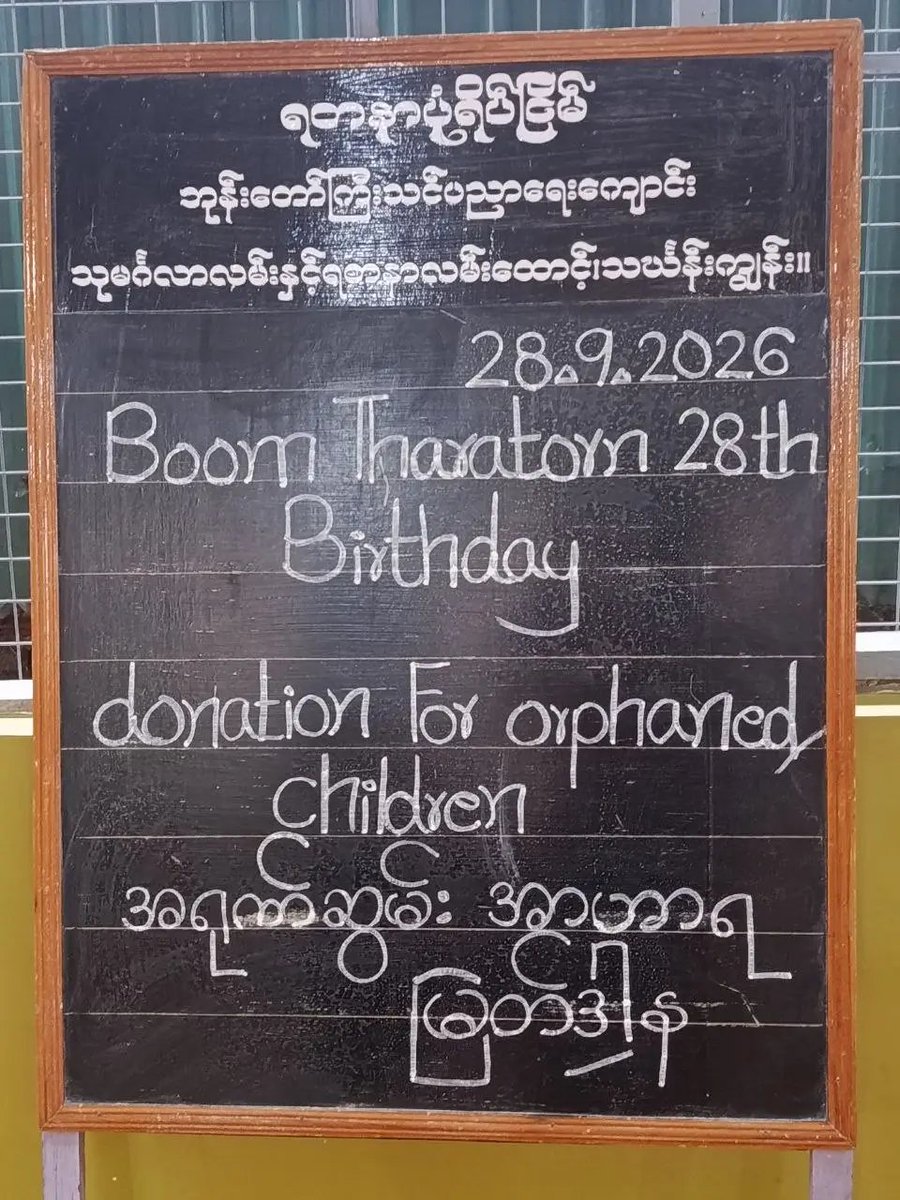 ရတနာပုံရိပ်ငြိမ်
ဘုန်းတော်ကြီးသင်ပညာရေးကျောင်း
သုမင်္ဂလာလမ်းနှင့်ရတနာလမ်းထောင့်၊သင်္ဃန်းကျွန်း။
28.9.2026
Boom Tharatorn 28th
Birthday
donation For orphaned
children
အရုဏ်ဆွမ်း အာဟာရ
မြတ်ဒါန